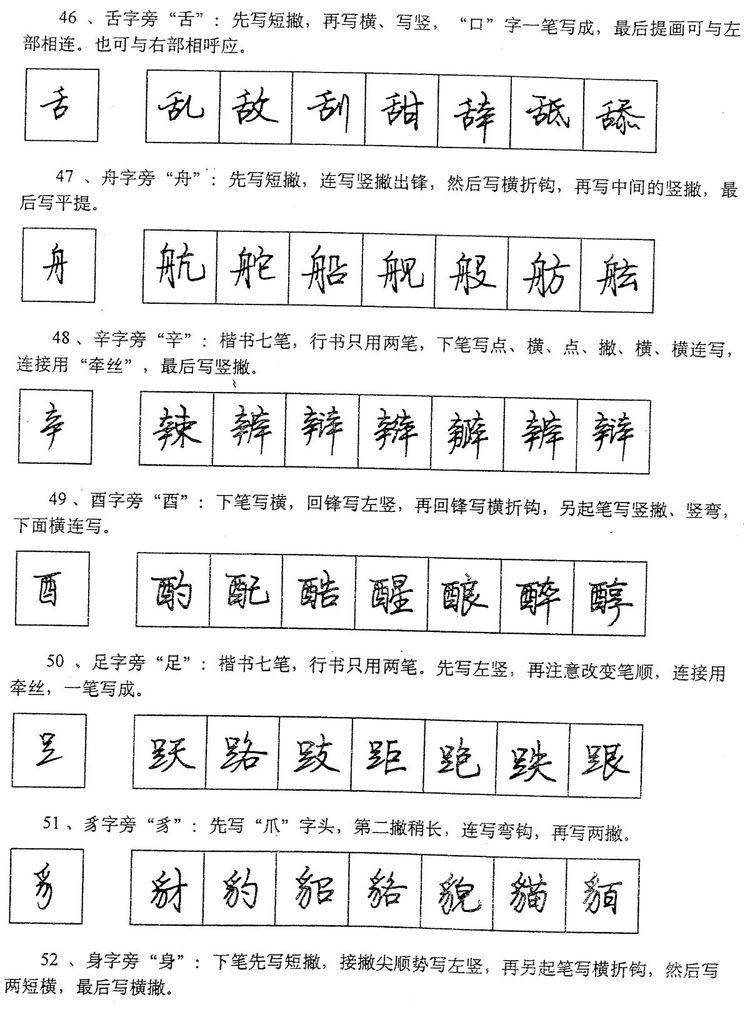 46、舌字旁“舌”：先写短撇，再写横、写竖，“口”字一笔写成，最后提画可与左
部相连。也可与右部相呼应。
舌 乱 敌 刮 甜 辞 舐 舔
47、舟字旁“舟”：先写短撇，连写竖撇出锋，然后写横折钩，再写中间的竖撇，最
后写平提。
舟 航 舵 船 舰 般 舫 舷
48、辛字旁“辛”：楷书七笔，行书只用两笔，下笔写点、横、点、撇、横、横连写，
连接用“牵丝”，最后写竖撇。
辛 辣 辨 辩 辫 瓣 辨 辩
49、酉字旁“酉”：下笔写横，回锋写左竖，再回锋写横折钩，另起笔写竖撇、竖弯，
下面横连写。
酉 酌 配 酷 醒 酿 醉 醇
50、足字旁“足”：楷书七笔，行书只用两笔。先写左竖，再注意改变笔顺，连接用
牵丝，一笔写成。
足 跃 路 跂 距 跑 跌 跟
51、豸字旁“豸”：先写“爪”字头，第二撇稍长，连写弯钩，再写两撇。
豸 豺 豹 貂 貉 貌 貓 貊
52、身字旁“身”：下笔先写短撇，接撇尖顺势写左竖，再另起笔写横折钩，然后写
两短横，最后写横撇。